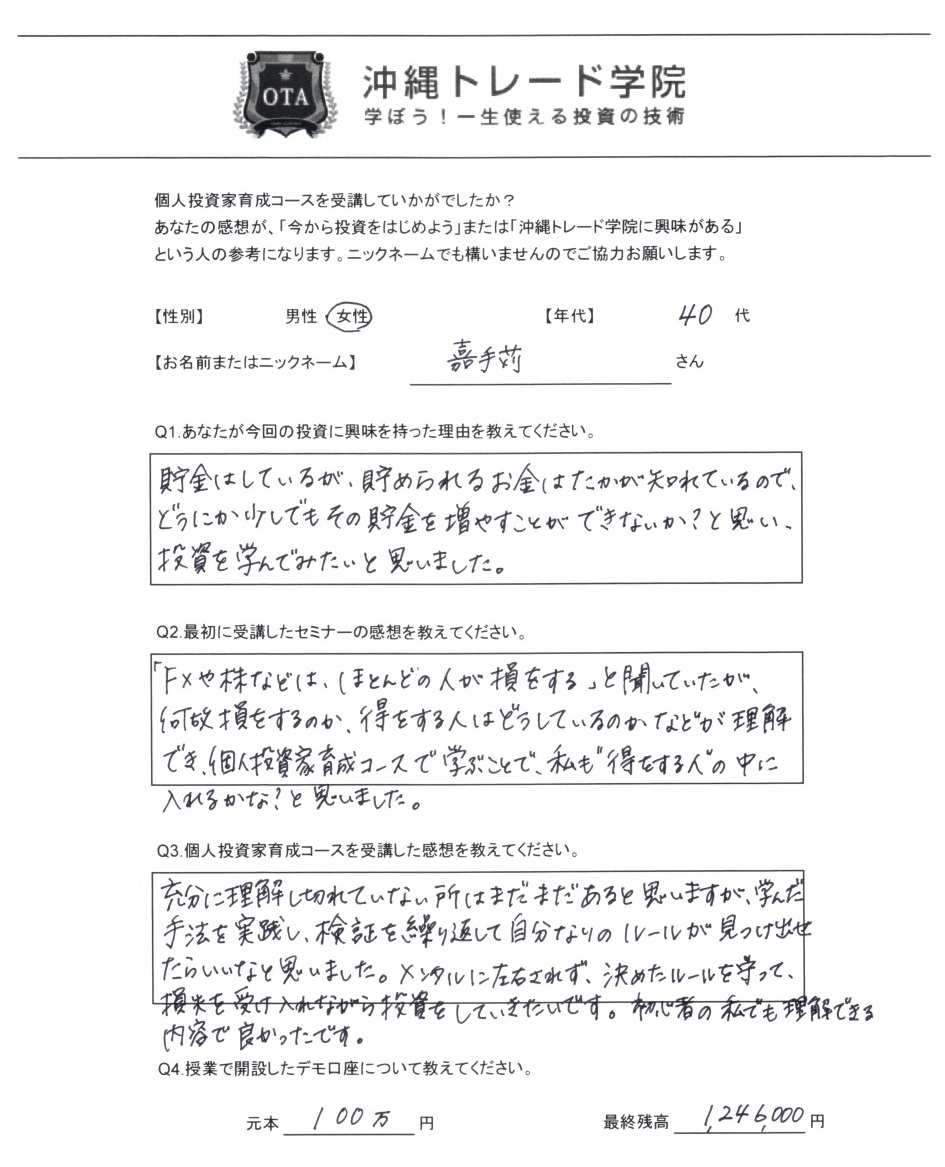 OTA
沖縄トレード学院
学ぼう！一生使える投資の技術
個人投資家育成コースを受講していかがでしたか？
あなたの感想が、「今から投資をはじめよう」または「沖縄トレード学院に興味がある」
という人の参考になります。ニックネームでも構いませんのでご協力お願いします。
【性別】 男性・女性 【年代】 40 代
【お名前またはニックネーム】 嘉手苅 さん
Q1.あなたが今回の投資に興味を持った理由を教えてください。
貯金はしているが、貯められるお金はたかが知れているので、
どうにか少しでもその貯金を増やすことができないか？と思い、
投資を学んでみたいと思いました。
Q2.最初に受講したセミナーの感想を教えてください。
「FXや株などは、ほとんどの人が損をする」と聞いていたが、
何故損をするのか、得をする人はどうしているのかなどが理解
でき、個人投資家育成コースで学ぶことで、私も"得をする人"の中に
入れるかな？と思いました。
Q3.個人投資家育成コースを受講した感想を教えてください。
充分に理解し切れていない所はまだまだあると思いますが、学んだ
手法を実践し、検証を繰り返して自分なりのルールが見つけ出せ
たらいいなと思いました。メンタルに左右されず、決めたルールを守って、
損失を受け入れながら投資をしていきたいです。初心者の私でも理解できる
内容で良かったです。
Q4.授業で開設したデモ口座について教えてください。
元本 100万 円 最終残高 1,246,000 円